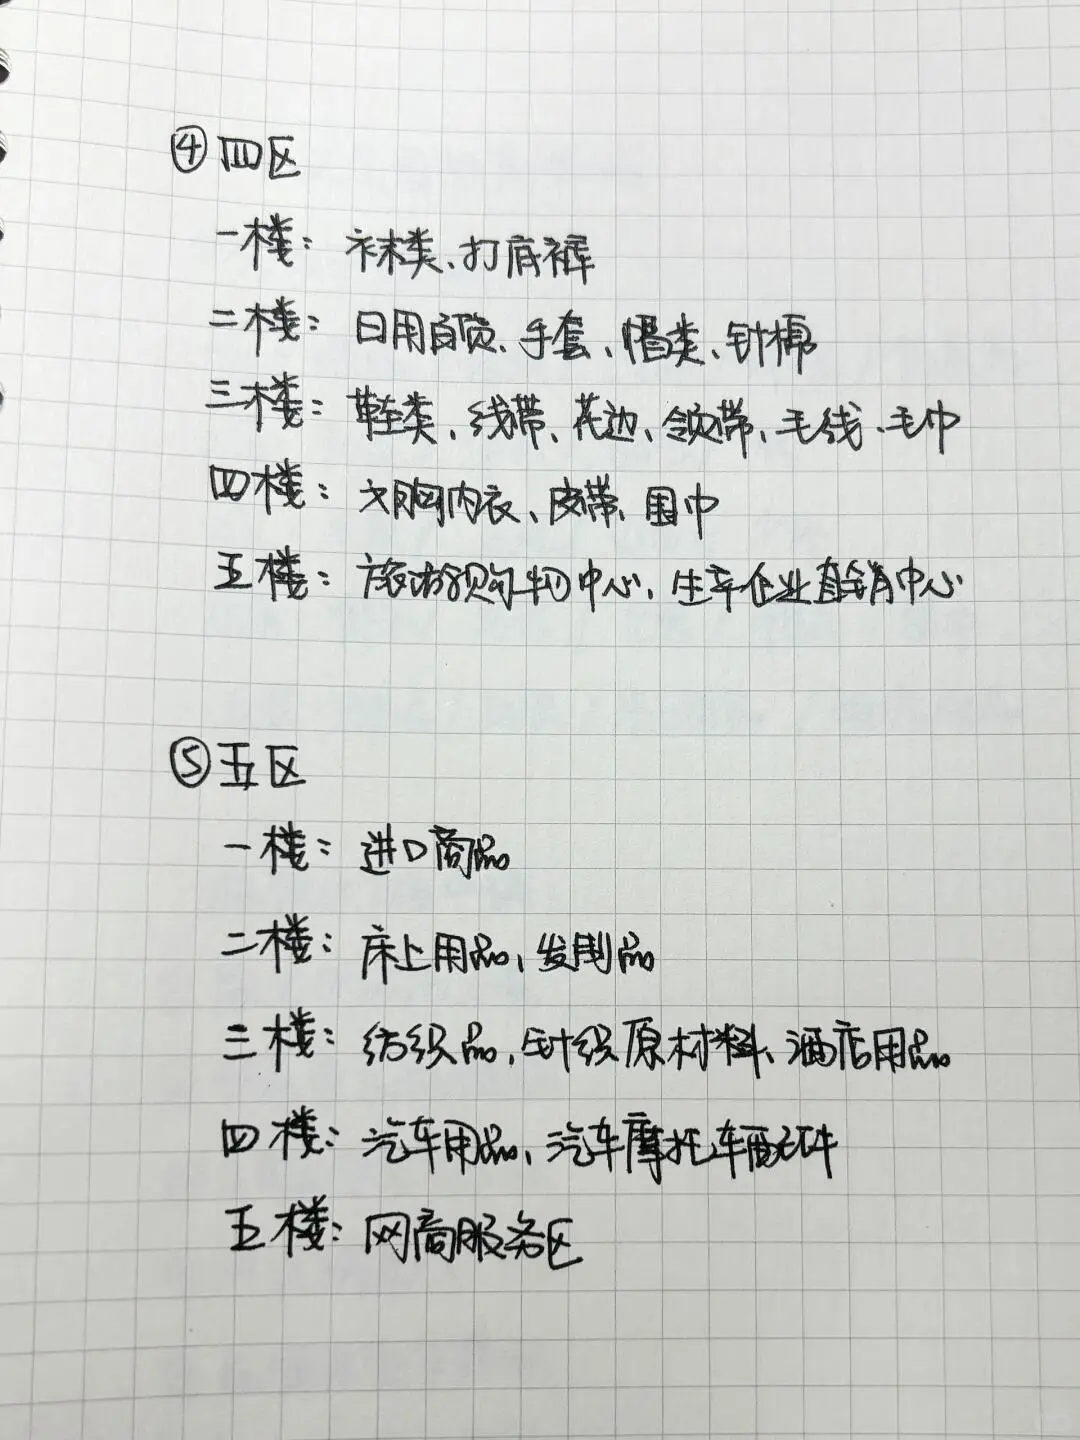 ④四区
一楼：袜类、打底裤
二楼：日用百货、手套、帽类、针棉
三楼：鞋类、线带、花边、领带、毛线、毛巾
四楼：文胸内衣、皮带、围巾
五楼：旅游购物中心、生产企业直销中心
⑤五区
一楼：进口商品
二楼：床上用品、发制品
三楼：纺织品、针织原材料、酒店用品
四楼：汽车用品、汽车摩托车配件
五楼：网商服务区